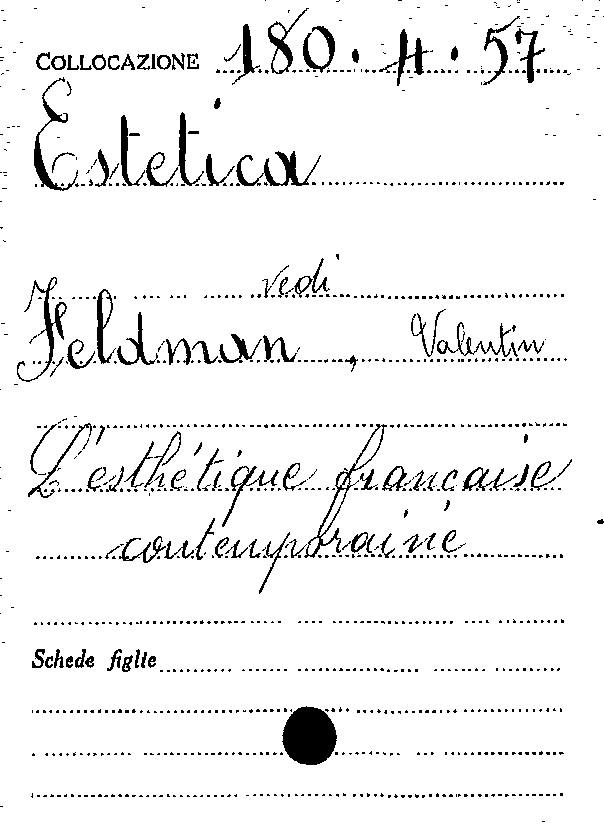 COLLOCAZIONE 180. H. 57
Estetica
vedi
Feldman, Valentin
L'esthétique francaise
contemporaine
Schede figlie